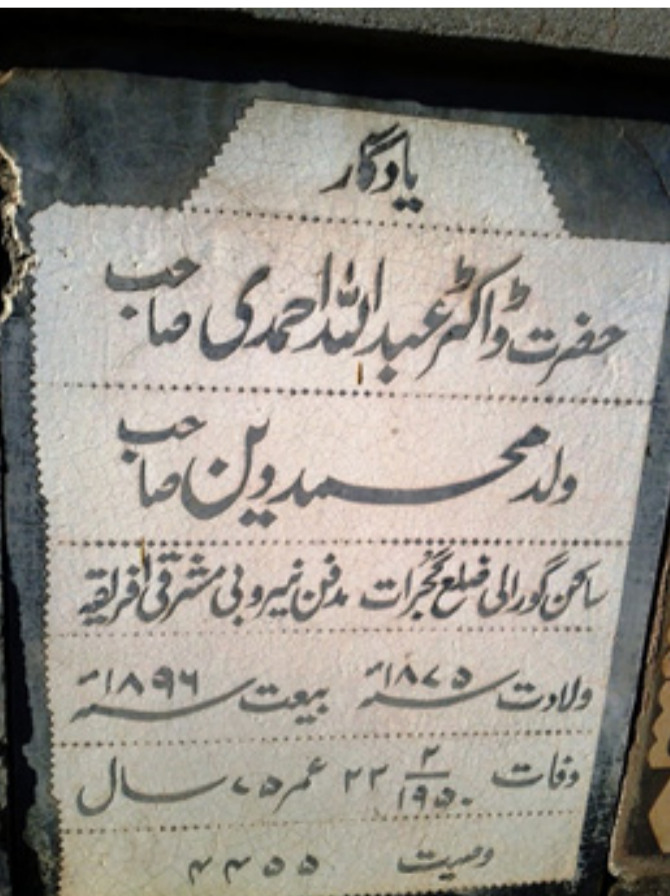 یادگار
حضرت ڈاکٹر عبداللہ احمدی صاحب
ولد محمد دین صاحب
ساکن گورالی ضلع گجرات مدفن نیروبی مشرقی افریقہ
ولادت سنہ ۱۸۷۵ء بیعت سنہ ۱۸۹۶ء
وفات ۲۲/۲/۱۹۵۰ عمر ۷۵ سال
وصیت ۴۴۵۵